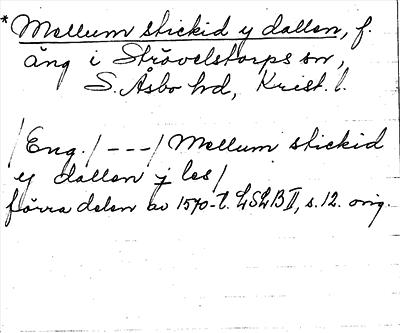 * Mellum stickid y dallen, f.
äng i Strövelstorps sn,
S. Åsbo hd, Krist. l.
/Eng./---/Mellum stickid
y dallen j les/
förra delen av 1570-t. LSLB II, s. 12. orig.